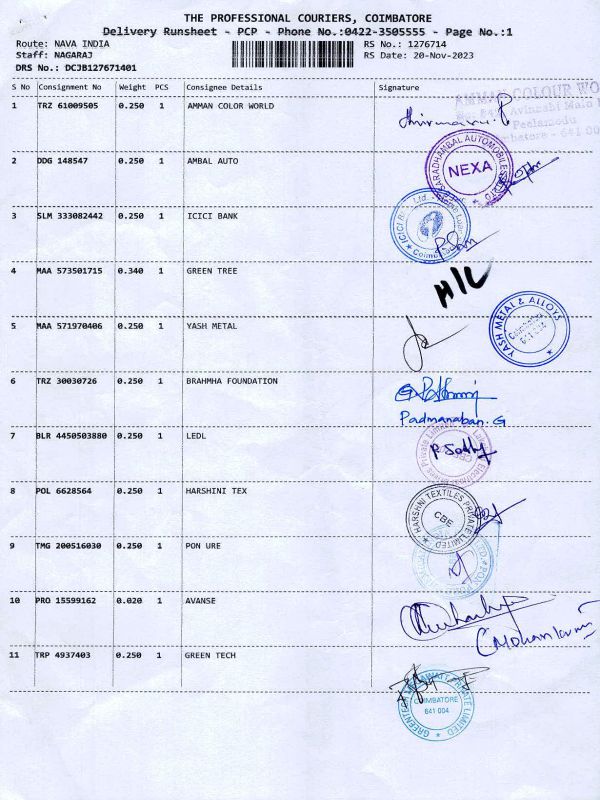 THE PROFESSIONAL COURIERS, COIMBATORE
Delivery Runsheet - PCP - Phone No.:0422-3505555 - Page No.:1
Route: NAVA INDIA RS No.: 1276714
Staff: NAGARAJ RS Date: 20-Nov-2023
DRS No.: DCJB127671401
S No Consignment No Weight PCS Consignee Details Signature
AMMAN COLOUR WO
1 TRZ 61009505 0.250 1 AMMAN COLOR WORLD
Avinashi
Peelamedu
641 00
2 DDG 148547 0.250 1 AMBAL AUTO
SARADHAMBAL AUTOMOBILES
NEXA
3 SLM 333082442 0.250 1 ICICI BANK
ICICI
Ltd.
4 MAA 573501715 0.340 1 GREEN TREE
5 MAA 571970406 0.250 1 YASH METAL
YASH METAL & ALLOYS
Coimbatore
641 004
6 TRZ 30030726 0.250 1 BRAHMHA FOUNDATION
Padmanaban. G
7 BLR 4450503880 0.250 1 LEDL
Private Limited
8 POL 6628564 0.250 1 HARSHINI TEX
HARSHNI TEXTILES PRIVATE LIMITED
CBE
9 TMG 200516030 0.250 1 PON URE
10 PRO 15599162 0.020 1 AVANSE
11 TRP 4937403 0.250 1 GREEN TECH
PRIVATE LIMITED
COIMBATORE
641 004